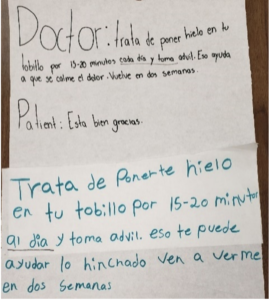 Doctor: trata de poner hielo en tu
tobillo por 15-20 minutos cada día y toma advil. Eso ayuda
a que se calme el dolor. Vuelve en dos semanas.
Patient: Esta bien gracias.
Trata de Ponerte hielo
en tu tobillo por 15-20 minutos
al día y toma advil. eso te puede
ayudar lo hinchado ven a verme
en dos semanas